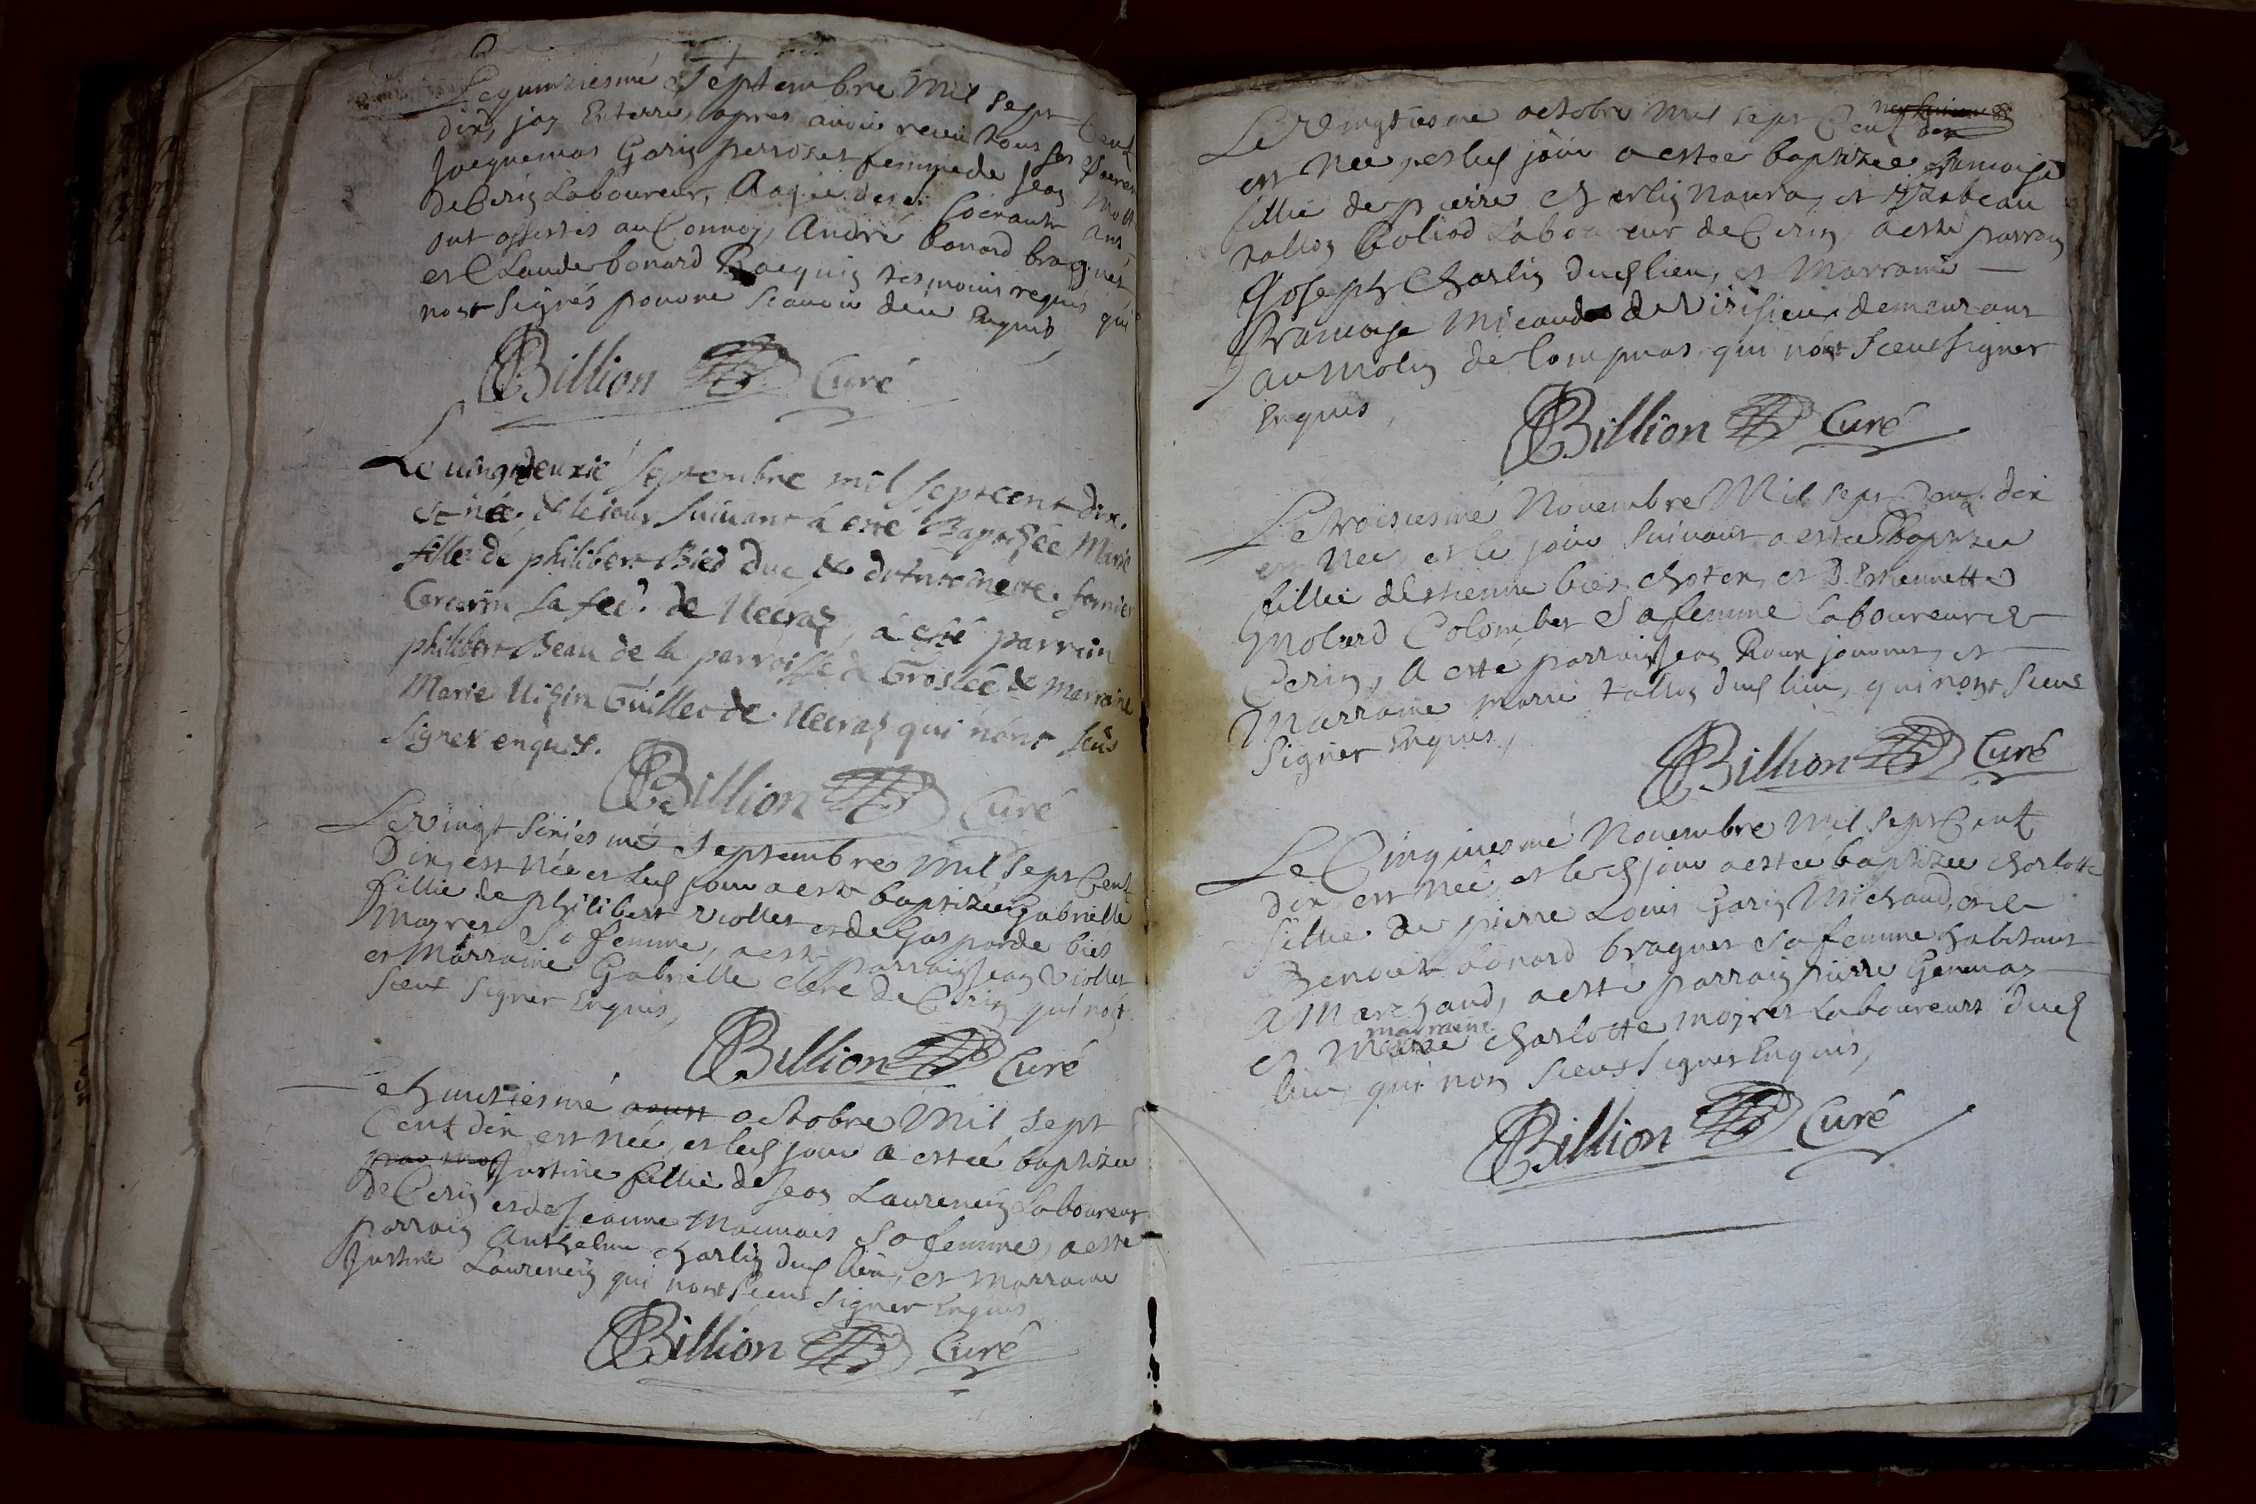 Le quinziesme Septembre Mil Sept Cent
dix, jay Enterre, apres avoir receu tous ses
Jaquemas Garin perroset femme de Jean
de Cerin Laboureur, Aagée de soixante ans
ont assistes au Convoy, André bonard braguet,
et Claude bonard Jacquin tesmoins requis qui
nont signés pour ne scavoir de ce Enquis
Billion Curé
Le vingt deuxié septembre mil sept cent dix.
est née & le jour suivant à esté Baptisée Marie
fille de philibert Bied duc & d'Antoinette fornier
sa fee. de Mecraz, à esté parrein
philibert Beau de la parroisse de Groslée & marraine
Marie Guillet de Mecraz qui nont sceus
signer enquis.
Billion Curé
Le vingt sixiesme Septembre Mil Sept Cent
Dix est née et led jour a esté baptizée Gabrielle
fillie de philibert viollet et de Gasparde bies
Mayret Sa femme, a esté parrain Jean Viollet
et Marraine Gabrielle clere de Cerin qui nont
sceus signer Enquis,
Billion Curé
Le huitiesme aoust octobre Mil Sept
Cent dix est née, et led jour a estée baptizée
Justine fillie de Jean Laurencin Laboureur
de Cerin et de Jeanne Mauvais Sa femme, a esté
parrain Anthelme charlin dud lieu, et Marraine
Justine Laurencin qui nont sceus signer Enquis
Billion Curé
Le Vingtiesme octobre Mil Sept Cent dix
est Née, et led jour a estée baptizée francoise
fillie de pierre charlin Navra, et Izabeau
tallon Goliod Laboureur de Cerin, a esté parrain
Joseph Charlin dud lieu, et Marraine
francoise Micaud de Virisieu demeurant
au Molin de Compnas, qui nont sceus signer
Enquis,
Billion Curé
Le troisiesme Novembre Mil Sept Cent dix
est Née, et le jour suivant a estée baptizée
fillie d'Estienne bies choten, et D. Estiennette
Molard Colombet Sa femme Laboureur de
Cerin, A esté parrain Jean Roux jouvent, et
Marraine Marie tallon dud lieu, qui nont sceus
signer Enquis,
Billion Curé
Le Cinquiesme Novembre Mil Sept Cent
dix est Née, et led jour a estée baptizée charlotte
fillie de pierre Louis Garin Michaud, et de
Benoite bonard braguet Sa femme habitant
A Marchand, a esté parrain pierre Genevaz
marraine
et charlotte mayret Laboureurs dud
lieu qui non sceus signer Enquis,
Billion Curé